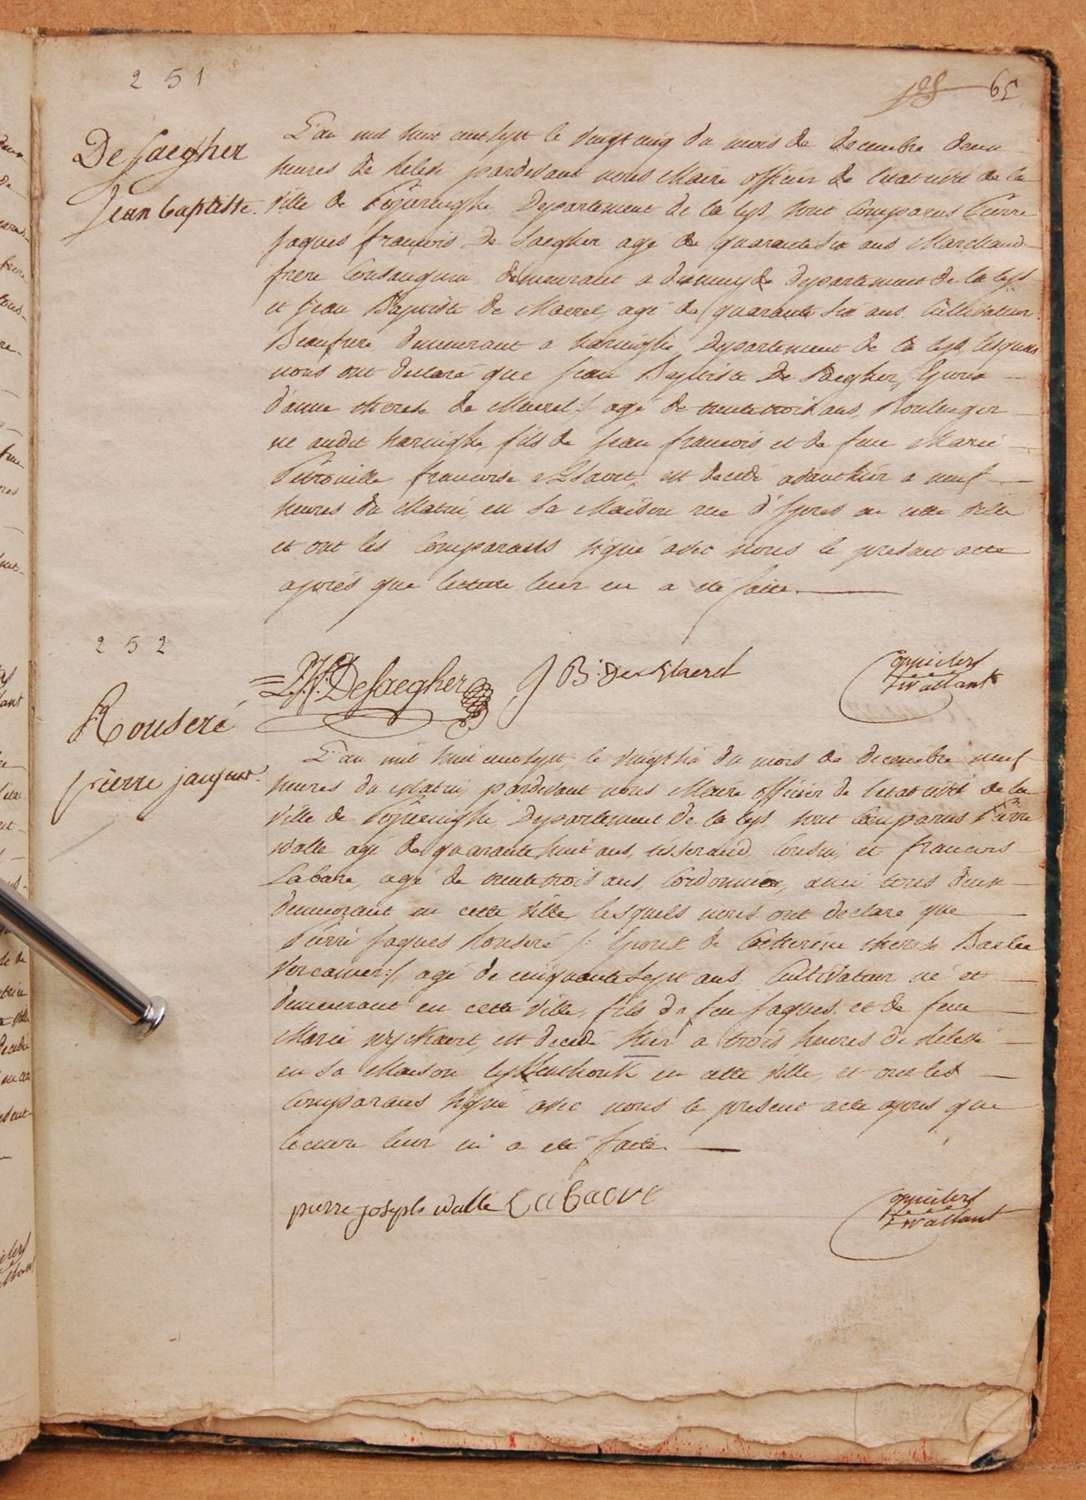 251
65
De Saegher
Jean baptiste.
L'an mil huit cent sept le vingt cinq du mois de decembre deux
heures de relevé pardevant nous Maire officier de l'etat civil de la
ville de Poperinghe Departement de la Lys sont Comparus Pierre
Jaques françois De Saegher agé de quarante six ans Marchand
frere Consanguin demeurant a dixmude departement de la Lys
et Jean Baptiste de Maerel agé de quarante six ans Cultivateur
Beaufrere demeurant a haringhe Departement de la Lys lesquels
nous ont declaré que Jean Baptiste De Saegher, Epoux
d'anne therese de Maerel :/ agé de trente trois ans, Boulenger
né audit haringhe, fils de Jean francois et de feue Marie
Petronille francoise, est decedé avant hier a neuf
heures du Matin, en sa Maison rue d'Ypres en cette ville
et ont les Comparans signé avec nous le present acte
après que lecture leur en a été faite.
P.J.F. De Saegher J B: De Maerel
252
Rouseré
pierre jacques.
L'an mil huit cent sept le vingt six du mois de decembre neuf
heures du Matin pardevant nous Maire officier de l'etat civil de la
ville de Poperinghe Departement de la Lys sont Comparus Pierre
Walle agé de quarante huit ans, tisserand Cousin et francois
Labare, agé de trente trois ans, Cordonnier, ami tous deux
demeurant en cette ville lesquels nous ont declaré que
Pierre Jaques Rouseré /: Epoux de Catherine therese Baelde
Vercauver :/ agé de cinquante sept ans, Cultivateur né et
demeurant en cette ville, fils de feu Jaques et de feue
Marie, est decedé hier a trois heures de relevé
en sa Maison en cette ville, et ont les
Comparans signé avec nous le present acte apres que
lecture leur en a été faite.
pierre joseph walle Labaere